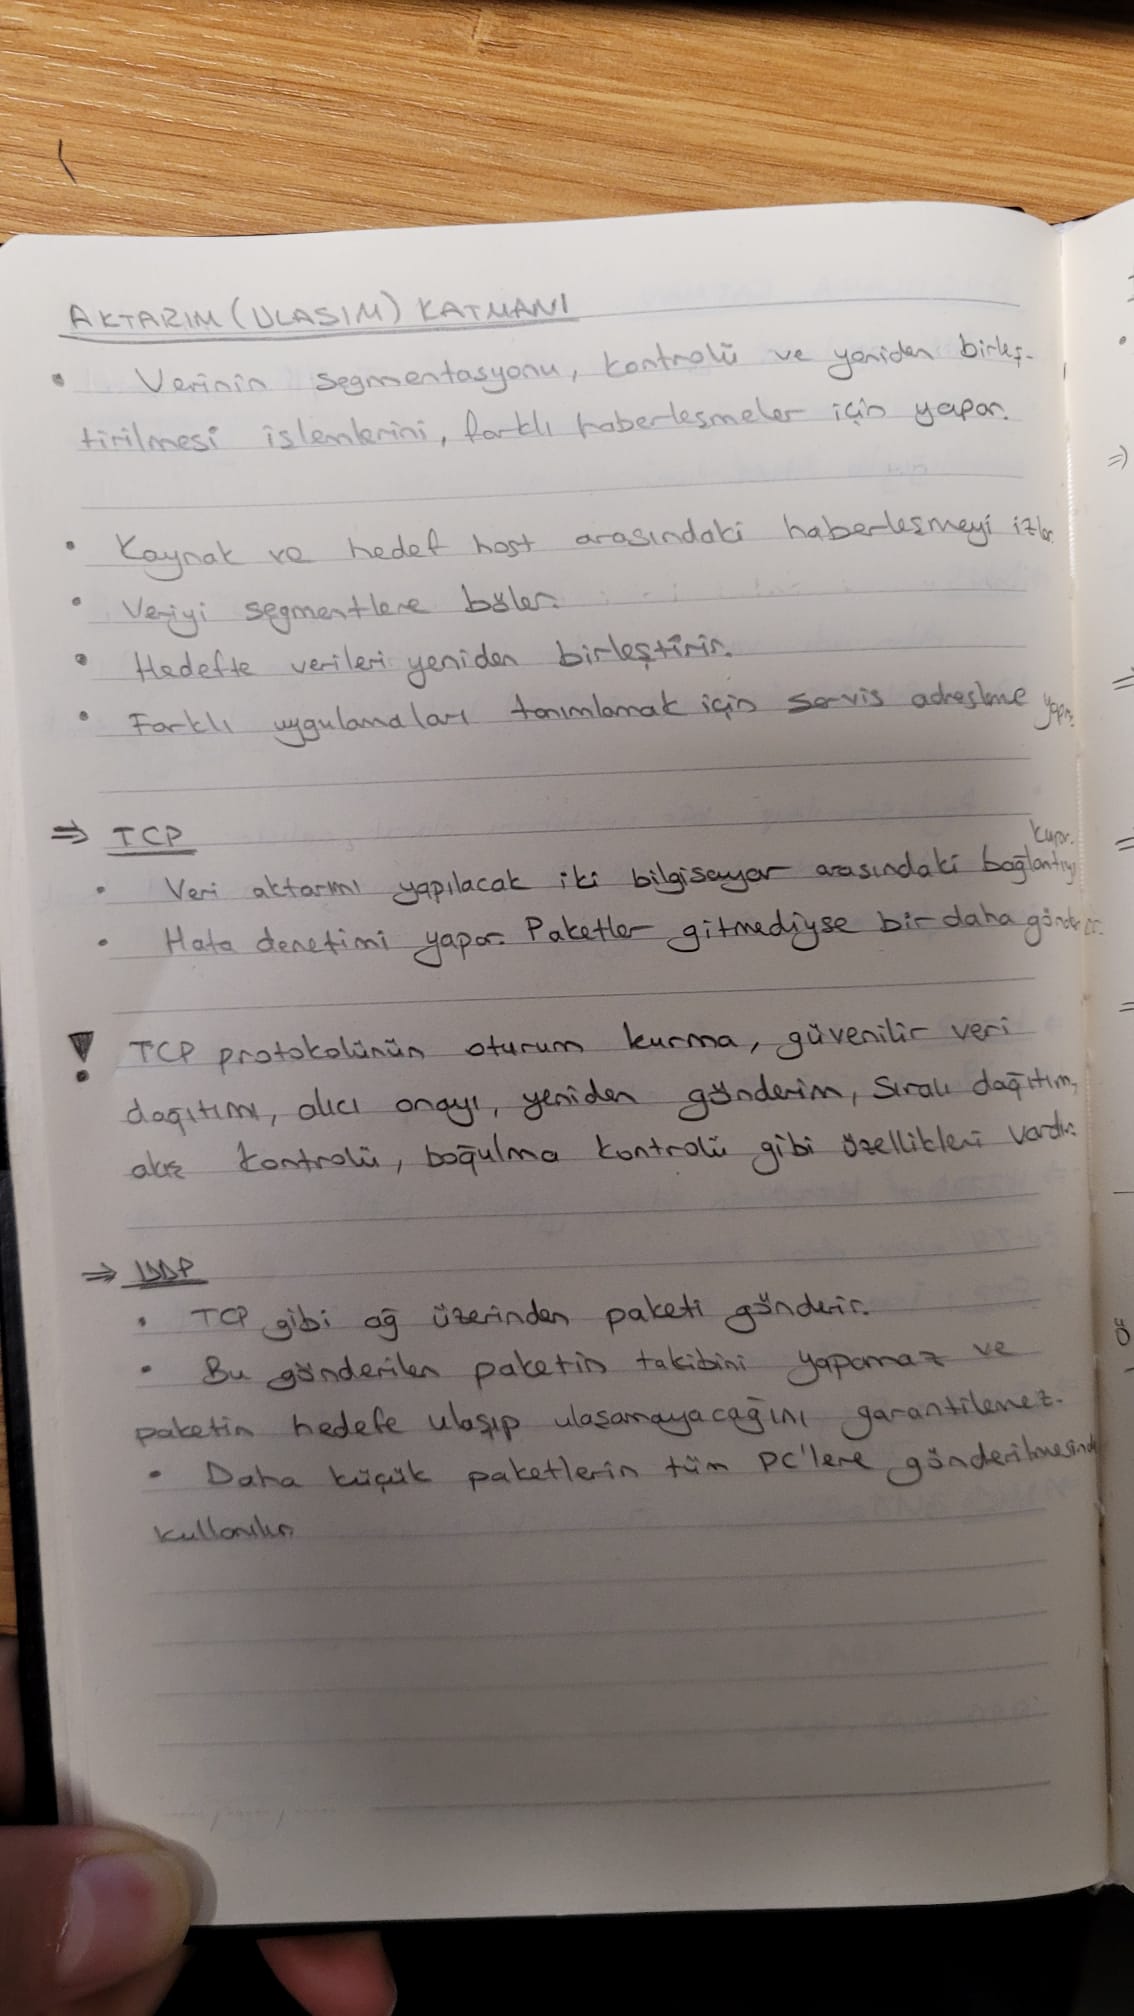 AKTARIM (ULASIM) KATMANI
• Verinin segmentasyonu, kontrolü ve yeniden birleş-
tirilmesi işlemlerini, farklı haberleşmeler için yapar.
• Kaynak ve hedef host arasındaki haberleşmeyi izler.
• Veriyi segmentlere böler.
• Hedefte verileri yeniden birleştirir.
• Farklı uygulamaları tanımlamak için servis adresleme yapar.
⇒ TCP
• Veri aktarımı yapılacak iki bilgisayar arasındaki bağlantıyı kurar.
• Hata denetimi yapar. Paketler gitmediyse bir daha gönderir.
! TCP protokolünün oturum kurma, güvenilir veri
dağıtımı, alıcı onayı, yeniden gönderim, sıralı dağıtım,
akış kontrolü, boğulma kontrolü gibi özellikleri vardır.
⇒ UDP
• TCP gibi ağ üzerinden paketi gönderir.
• Bu gönderilen paketin takibini yapamaz ve
paketin hedefe ulaşıp ulaşamayacağını garantilemez.
• Daha küçük paketlerin tüm PC'lere gönderilmesinde
kullanılır.